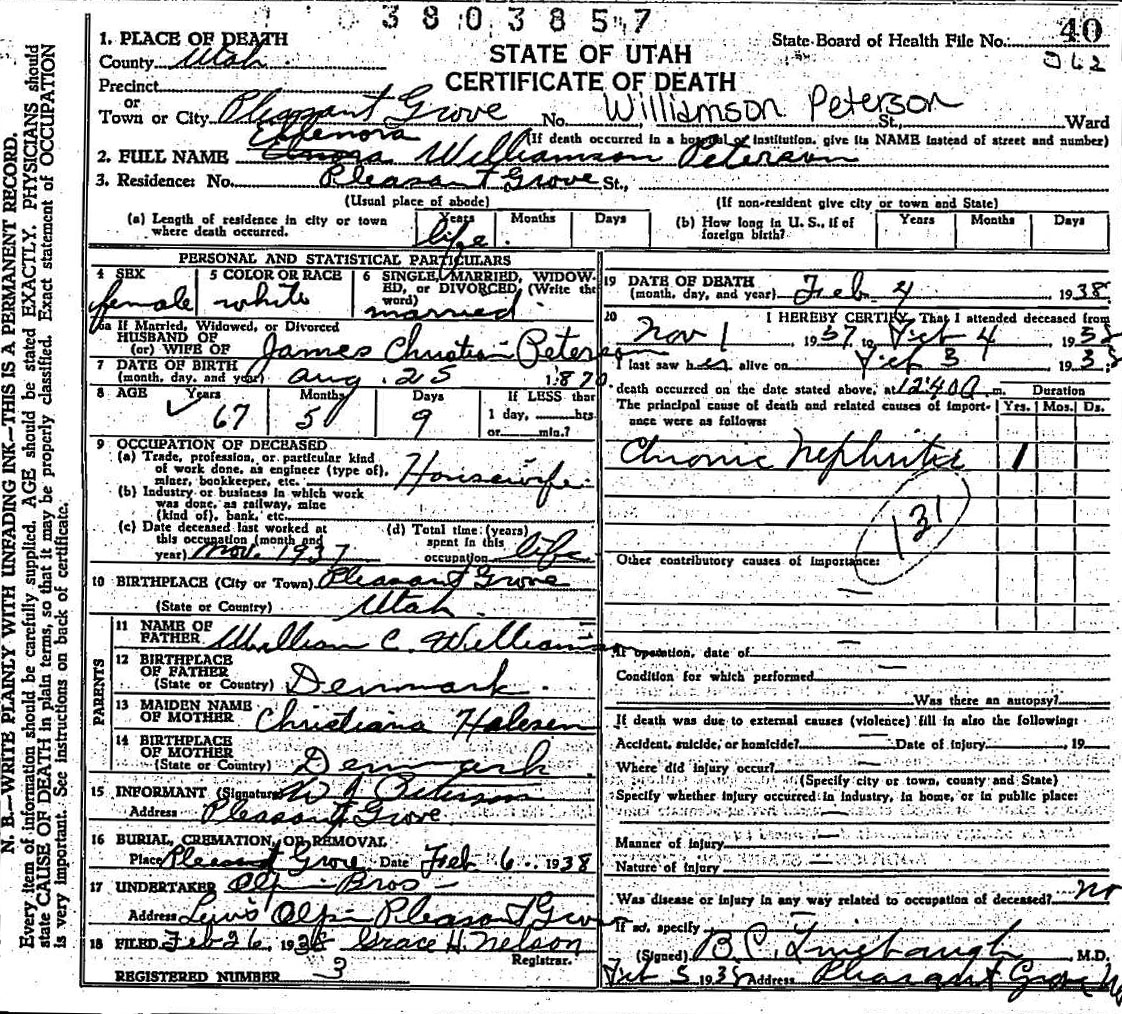 3803857
1. PLACE OF DEATH
County Utah
Precinct
or
Town or City Pleasant Grove No. St., Ward
Williamson Peterson
STATE OF UTAH
CERTIFICATE OF DEATH
State Board of Health File No. 40
362
(If death occurred in a hospital or institution, give its NAME instead of street and number)
Ellenora
2. FULL NAME Enora Williamson Peterson
3. Residence: No. Pleasant Grove St.,
(Usual place of abode) (If non-resident give city or town and State)
(a) Length of residence in city or town where death occurred. Years life. Months Days
(b) How long in U. S., if of foreign birth? Years Months Days
PERSONAL AND STATISTICAL PARTICULARS
4 SEX female
5 COLOR OR RACE white
6 SINGLE, MARRIED, WIDOWED, or DIVORCED, (Write the word) married
6a If Married, Widowed, or Divorced
HUSBAND OF
(or) WIFE OF James Christian Peterson
7 DATE OF BIRTH
(month, day, and year) Aug. 25 1870
8 AGE Years 67 Months 5 Days 9 If LESS than 1 day, hrs. or min.?
9 OCCUPATION OF DECEASED
(a) Trade, profession, or particular kind
of work done, as engineer (type of),
miner, bookkeeper, etc. Housewife
(b) Industry or business in which work
was done, as railway, mine
(kind of), bank, etc.
(c) Date deceased last worked at
this occupation (month and
year) Nov. 1937
(d) Total time (years)
spent in this
occupation life
10 BIRTHPLACE (City or Town) Pleasant Grove
(State or Country) Utah
PARENTS
11 NAME OF
FATHER William C. Williamson
12 BIRTHPLACE
OF FATHER
(State or Country) Denmark
13 MAIDEN NAME
OF MOTHER Christiana
14 BIRTHPLACE
OF MOTHER
(State or Country) Denmark
15 INFORMANT (Signature) Peterson
Address Pleasant Grove
16 BURIAL, CREMATION, OR REMOVAL
Place Pleasant Grove Date Feb 6 1938
17 UNDERTAKER Olpin Bros
Address Lewis Olpin Pleasant Grove
18 FILED Feb 26, 1938 Grace H. Nelson
Registrar.
REGISTERED NUMBER 3
19 DATE OF DEATH
(month, day, and year) Feb 4 1938
20 I HEREBY CERTIFY, That I attended deceased from
Nov 1 1937 to Feb 4 1938
I last saw her alive on Feb 3 1938
death occurred on the date stated above, at 12:40 a m.
The principal cause of death and related causes of importance were as follows:
Duration
Yrs. Mos. Ds.
Chronic Nephritis 1
131
Other contributory causes of importance:
If operation, date of
Condition for which performed
Was there an autopsy?
If death was due to external causes (violence) fill in also the following:
Accident, suicide, or homicide? Date of injury , 19
Where did injury occur?
(Specify city or town, county and State)
Specify whether injury occurred in industry, in home, or in public place:
Manner of injury
Nature of injury
Was disease or injury in any way related to occupation of deceased? no
If so, specify
(Signed) B. C. Linebaugh, M.D.
Feb 5 1938 Address Pleasant Grove
N. B.—WRITE PLAINLY WITH UNFADING INK—THIS IS A PERMANENT RECORD.
Every item of information should be carefully supplied. AGE should be stated EXACTLY. PHYSICIANS should
state CAUSE OF DEATH in plain terms, so that it may be properly classified. Exact statement of OCCUPATION
is very important. See instructions on back of certificate.